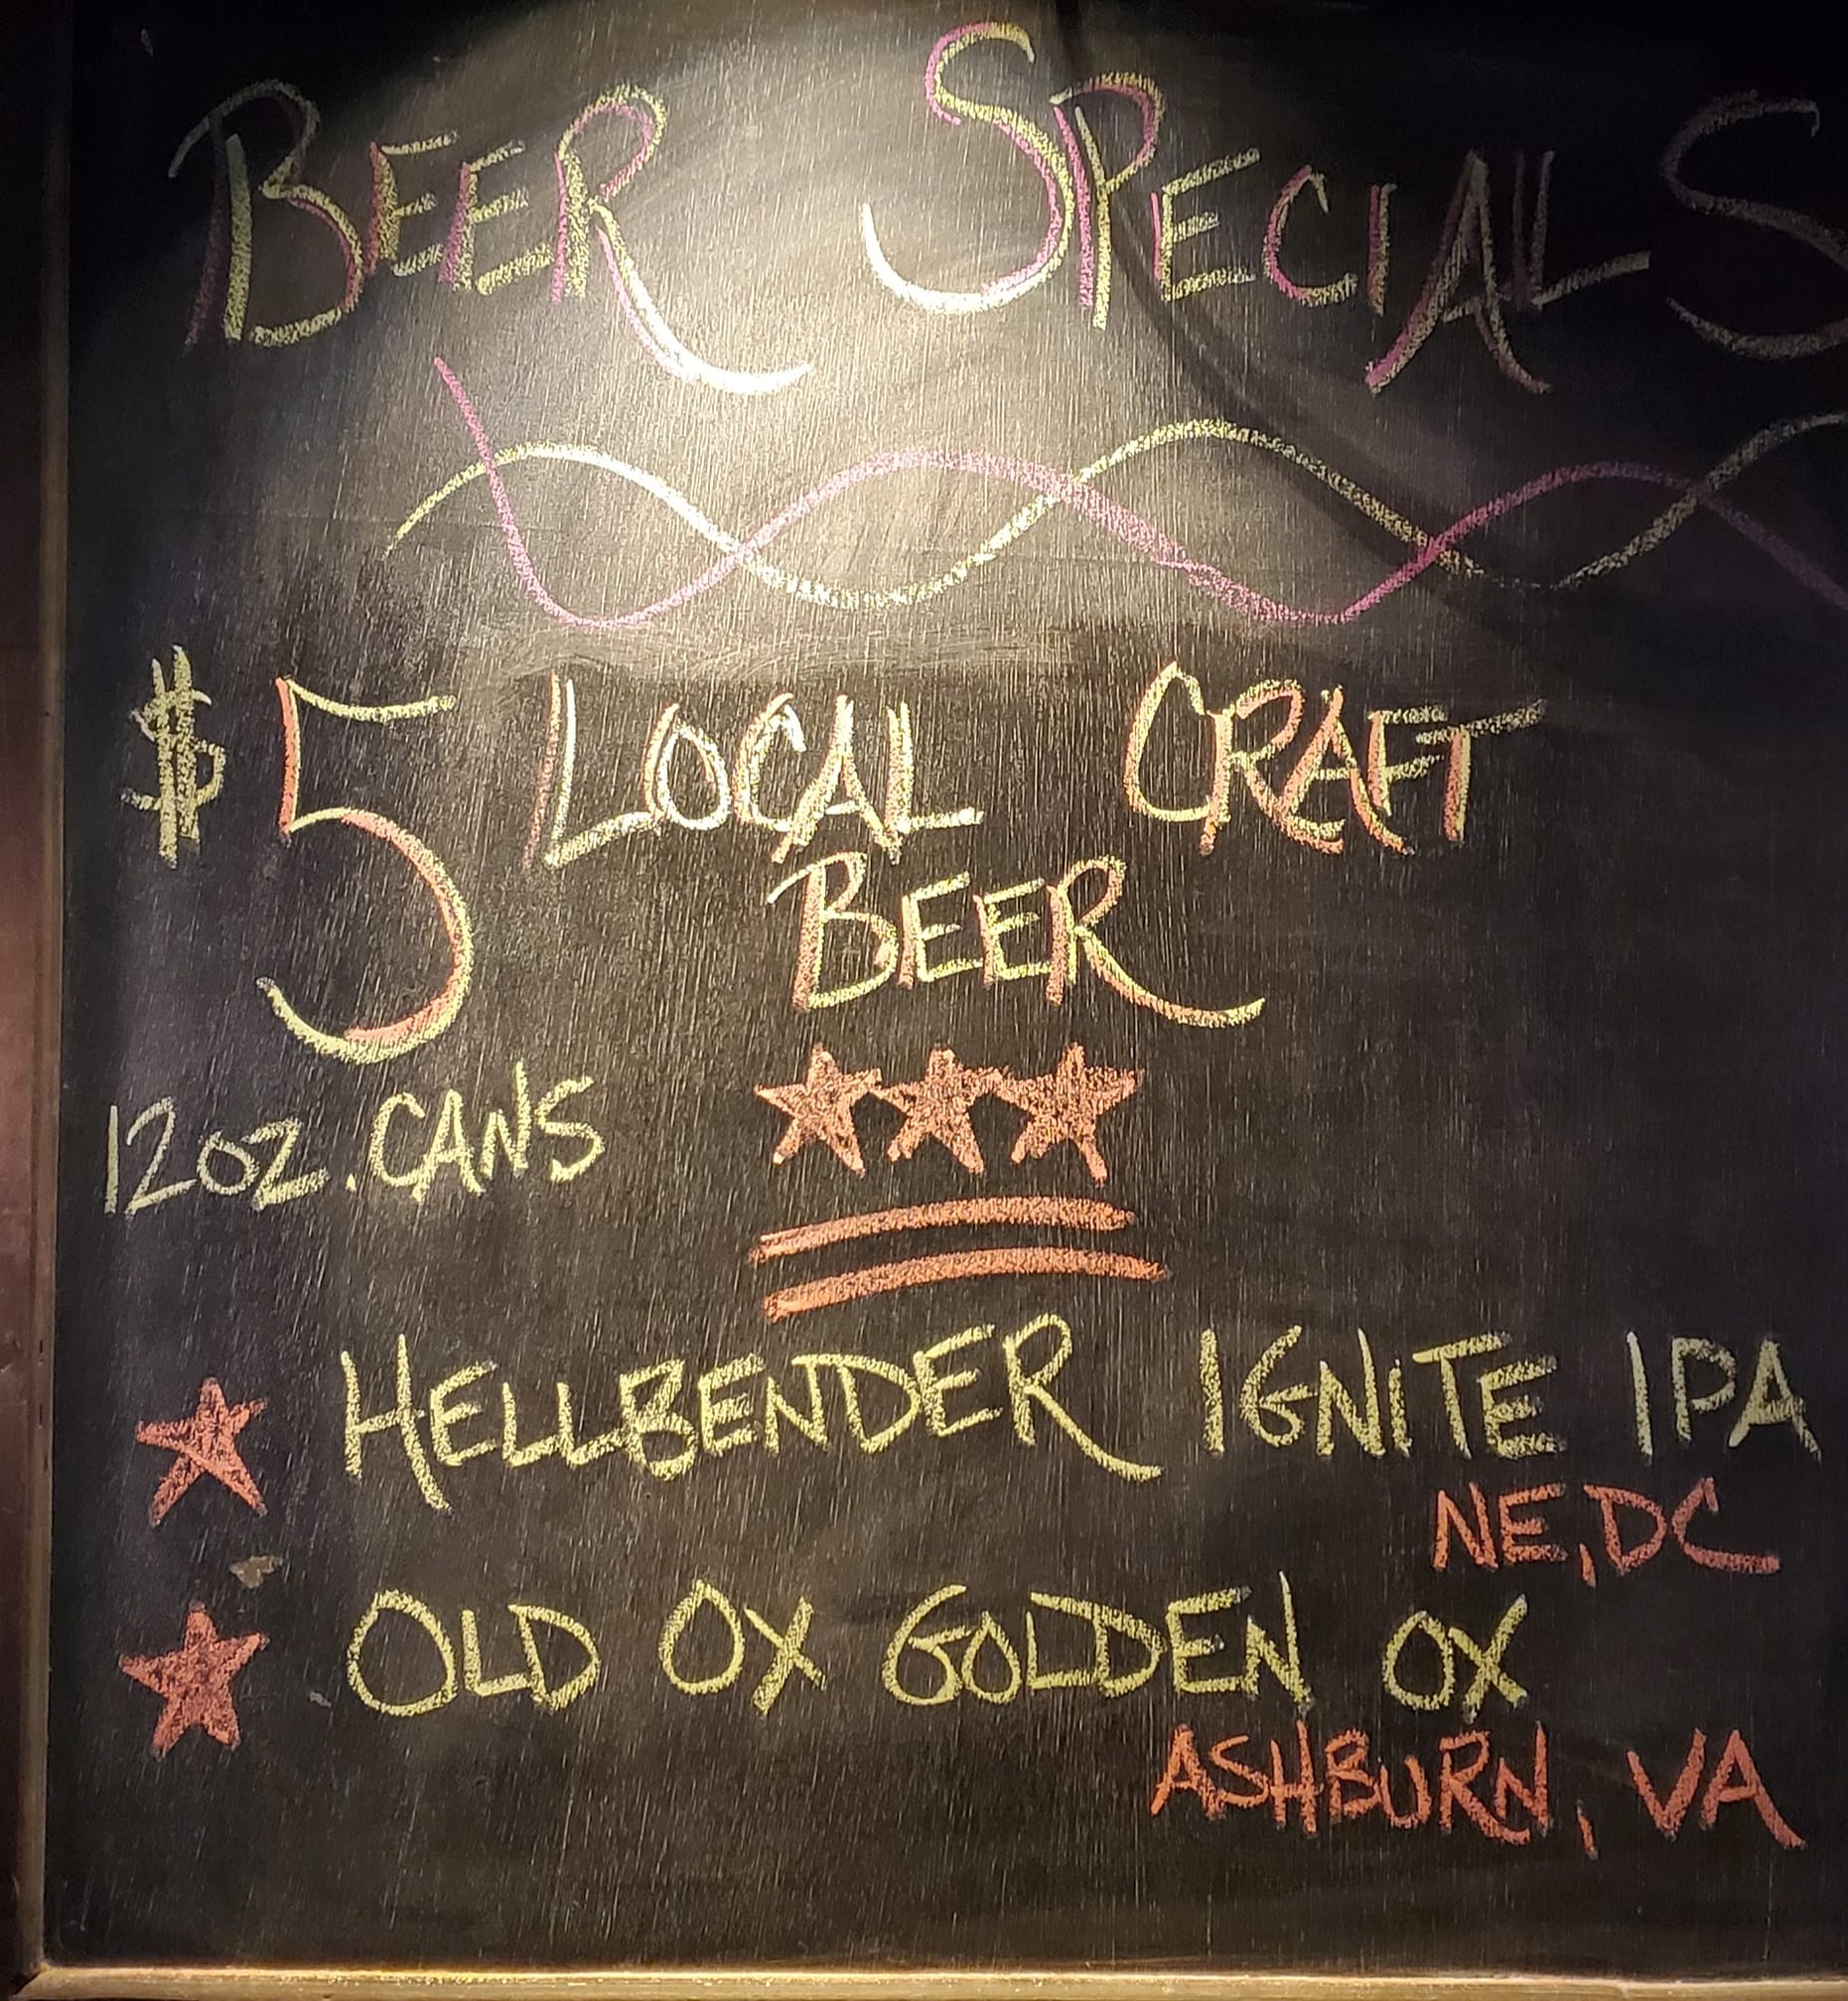 BEER SPECIALS
$5 LOCAL CRAFT
BEER
12oz. CANS
HELLBENDER IGNITE IPA
NE, DC
OLD OX GOLDEN OX
ASHBURN, VA